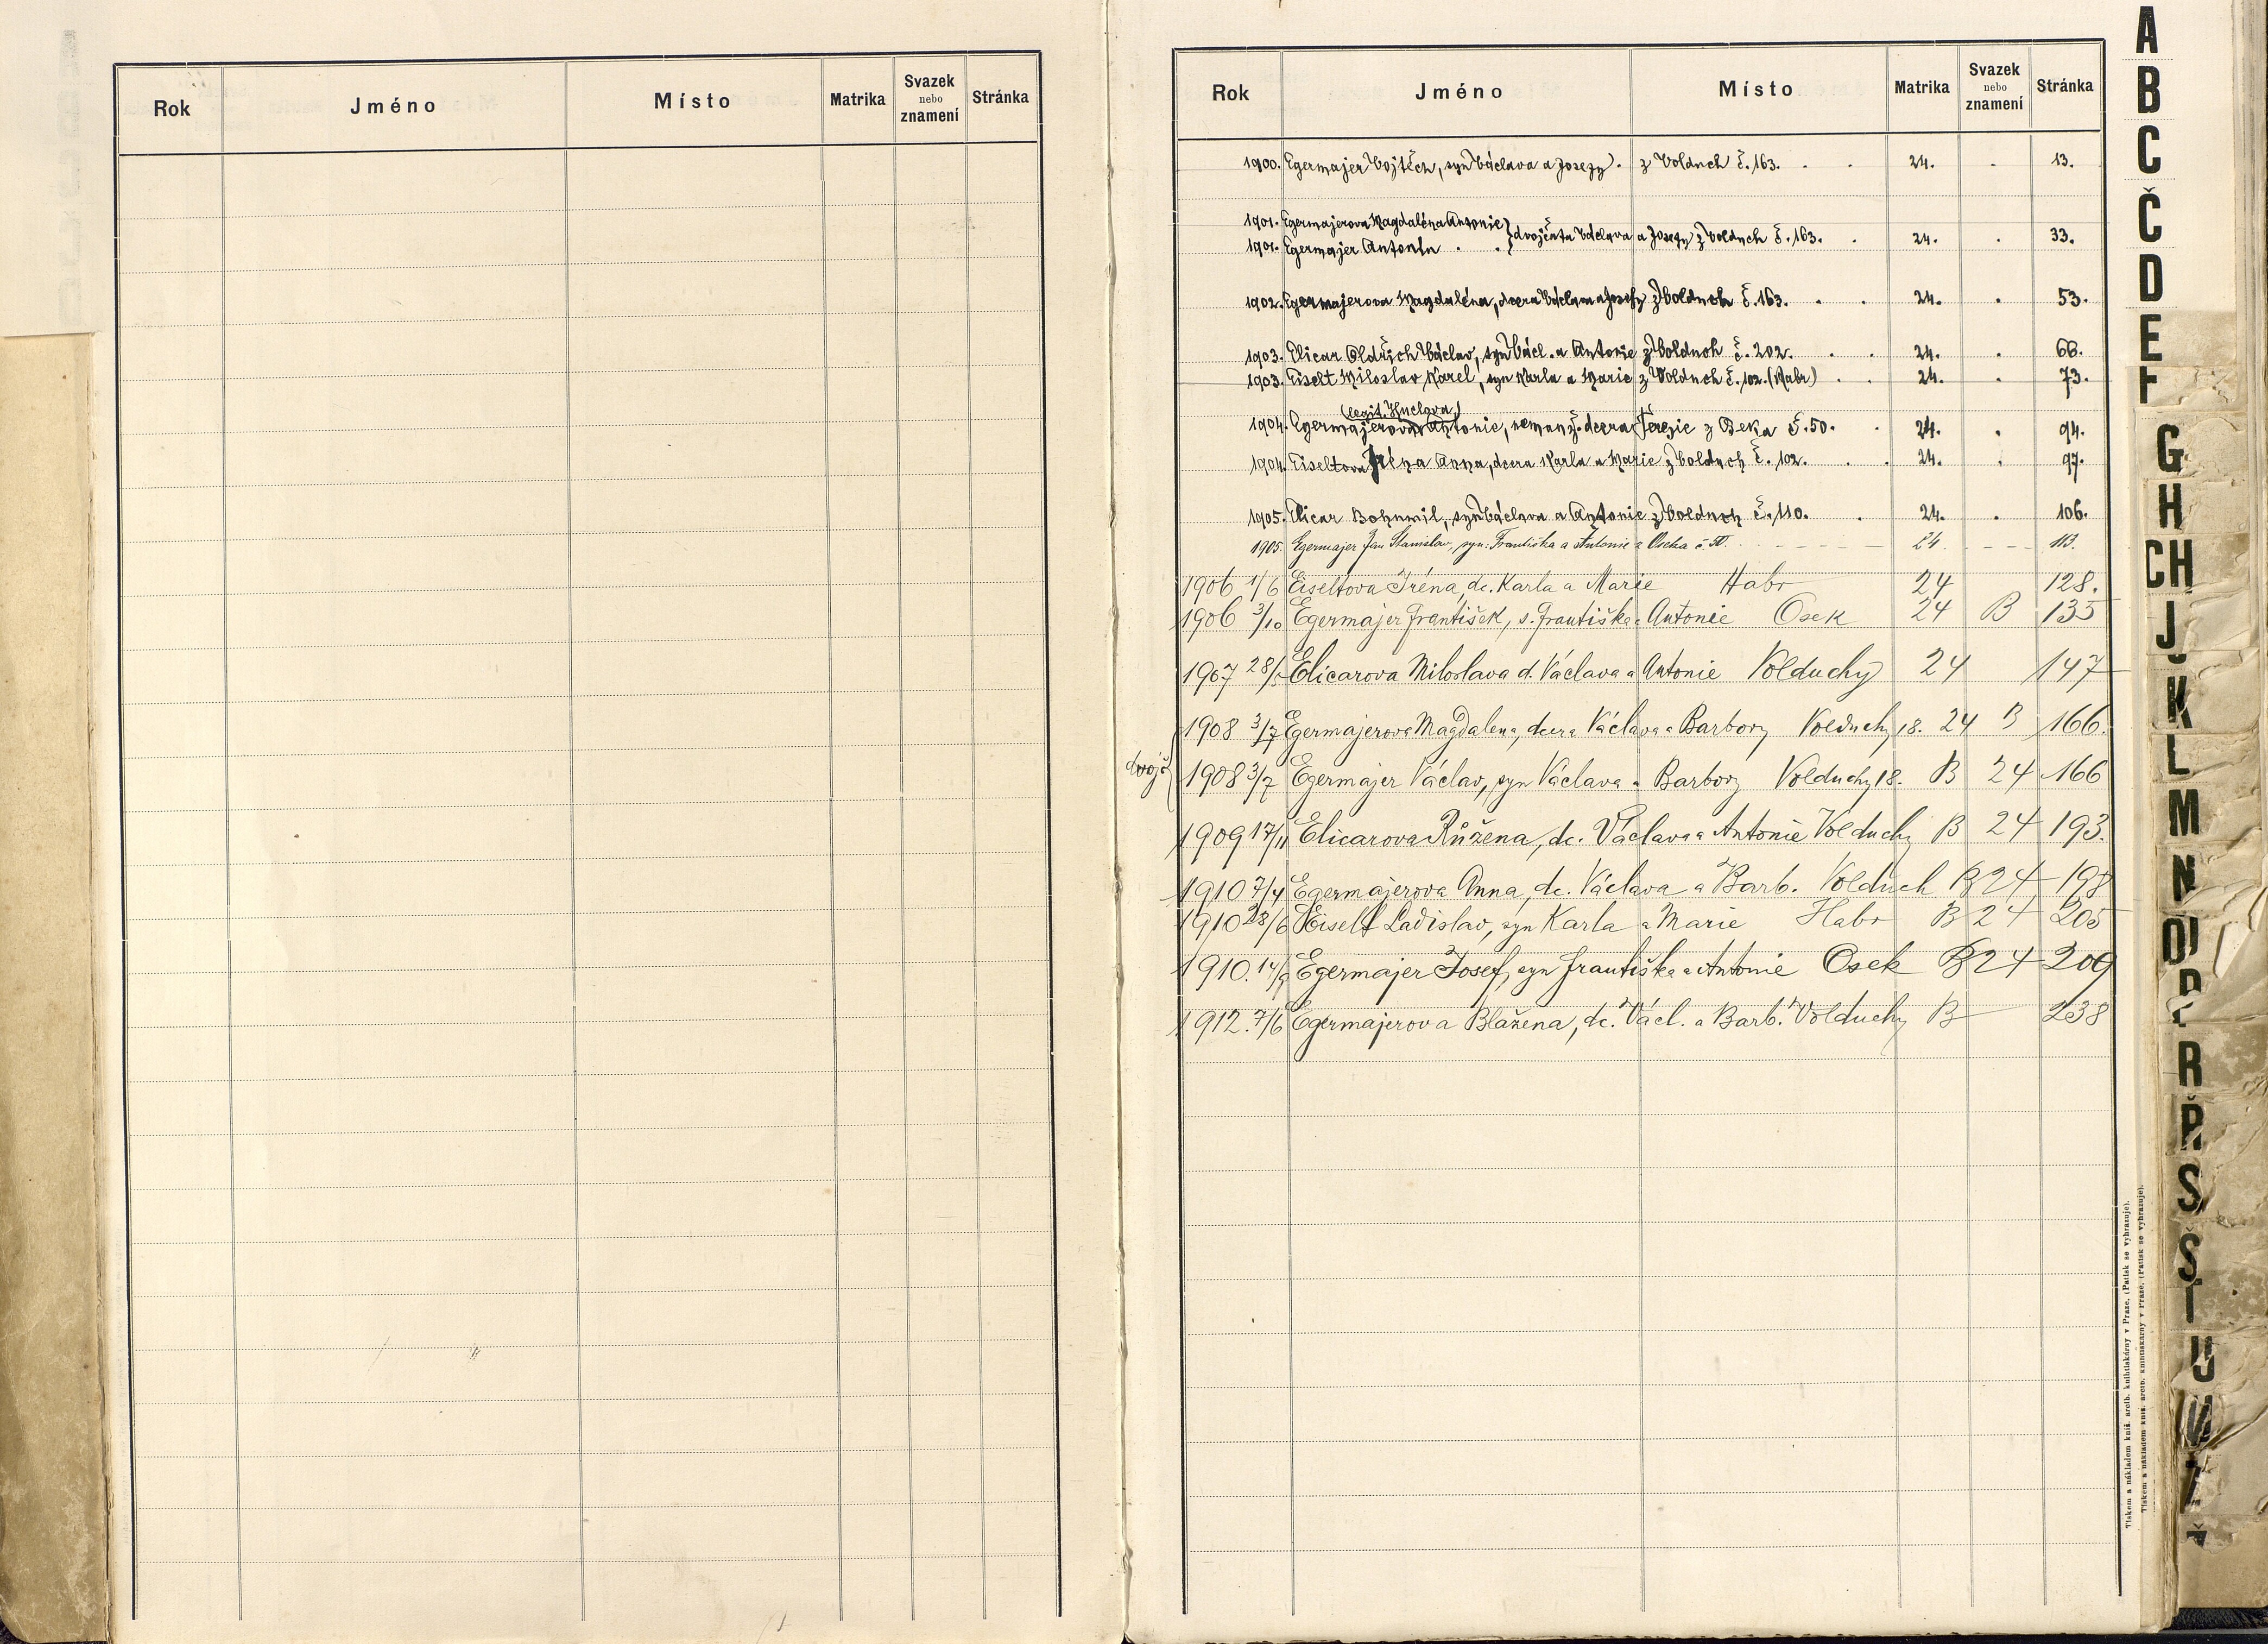 Rok Jméno Místo Matrika Svazek nebo znamení Stránka
Rok Jméno Místo Matrika Svazek nebo znamení Stránka
1900. Egermajer Vojtěch, syn Václava a Josefy. z Volduch č. 163. . . 24. . 13.
1901. Egermajerova Magdaléna Antonie } dvojčata Václava a Josefy z Volduch č. 163. . 24. . 33.
1901. Egermajer Antonín . .
1902. Egermajerova Magdaléna, dcera Václava a Josefy z Volduch č. 163. . . 24. . 53.
1903. Elicar Oldřich Václav, syn Václ. a Antonie z Volduch č. 202. . . 24. . 66.
1903. Eiselt Miloslav Karel, syn Karla a Marie z Volduch č. 102. (Habr) . . 24. . 73.
(legit. Huclova)
1904. Egermajerova Antonie, nemanž. dcera Terezie z Oseka č. 50. . 24. . 94.
1904. Eiseltova Iréna Anna, dcera Karla a Marie z Volduch č. 102. . . 24. . 97.
1905. Elicar Bohumil, syn Václava a Antonie z Volduch č. 110. . 24. . 106.
1905. Egermajer Jan Stanislav, syn Františka a Antonie z Oseka č. 50. 24. 113.
1906 1/6 Eiseltova Iréna, dc. Karla a Marie Habr 24 128.
1906 3/10 Egermajer František, s. Františka a Antonie Osek 24 B 135
1907 28/5 Elicarova Miloslava d. Václava a Antonie Volduchy 24 147
1908 3/7 Egermajerova Magdalena, dcera Václava a Barbory Volduchy 18. 24 B 166.
dvojč. 1908 3/7 Egermajer Václav, syn Václava a Barbory Volduchy 18. B 24 166
1909 17/11 Elicarova Růžena, dc. Václava a Antonie Volduchy B 24 193.
1910 7/4 Egermajerova Anna, dc. Václava a Barb. Volduch B 24 198
1910 23/6 Eiselt Ladislav, syn Karla a Marie Habr B 24 205
1910. 14/9 Egermajer Josef, syn Františka a Antonie Osek B 24 209
1912. 7/6 Egermajerova Blažena, dc. Václ. a Barb. Volduchy B 238
A
B
C
Č
D
E
F
G
H
CH
J
K
L
M
N
O
P
R
Ř
S
Š
T
U
V
Z
Ž
Tiskem a nákladem kníž. arcib. knihtiskárny v Praze. (Patisk se vyhrazuje).
Tiskem a nákladem kníž. arcib. knihtiskárny v Praze. (Patisk se vyhrazuje).